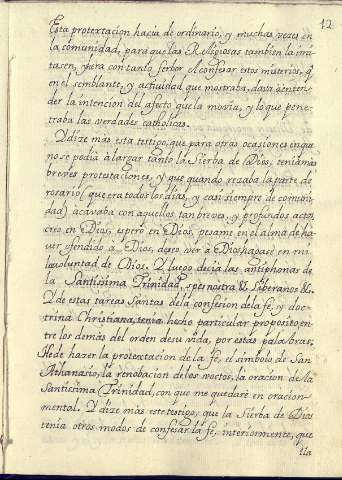 12
Esta protextacion hacia de ordinario, y muchas vezes en
la comunidad, para que las Religiosas tambien la imi
tasen, y era con tanto ferbor el confesar estos misterios, q
en el semblante, y actividad que mostraba, dava à enten
der la intencion del afecto que la movia, y lo que pene
traba las verdades catholicas.
Y dize mas esta testigo, que para otras ocasiones en que
no se podia àlargar tanto la Sierba de Dios, teniamas
breves protestaciones, y que quando rezaba la parte de
rosario (que era todos los dias, y casi siempre de comuni
dad) acavaba con aquellos tan breves, y profundos actos
creo en Dios, espero en Dios, pesame en el alma de ha
ver ofendido à Dios, deseo ver à Dios hagase en mi
la voluntad de Dios. Y luego decia las antiphonas de
la Santissima Trinidad, spes nostra &c Liberanos &c.
Y de estas tareas Santas de la confesion de la fe, y doc
trina Christiana, tenia hecho particular proposito en
tre los demàs del orden de su vida, por estas palabras,
He de hazer la protextacion de la fe, el simbolo de San
Athanasio, la renobacion de los voctos, la oracion de la
Santissima Trinidad, con que me quedarè en oracion
mental. Y dize mas este testigo, que la Sierba de Dios
tenia otros modos de confesar la fè, interiormente, que